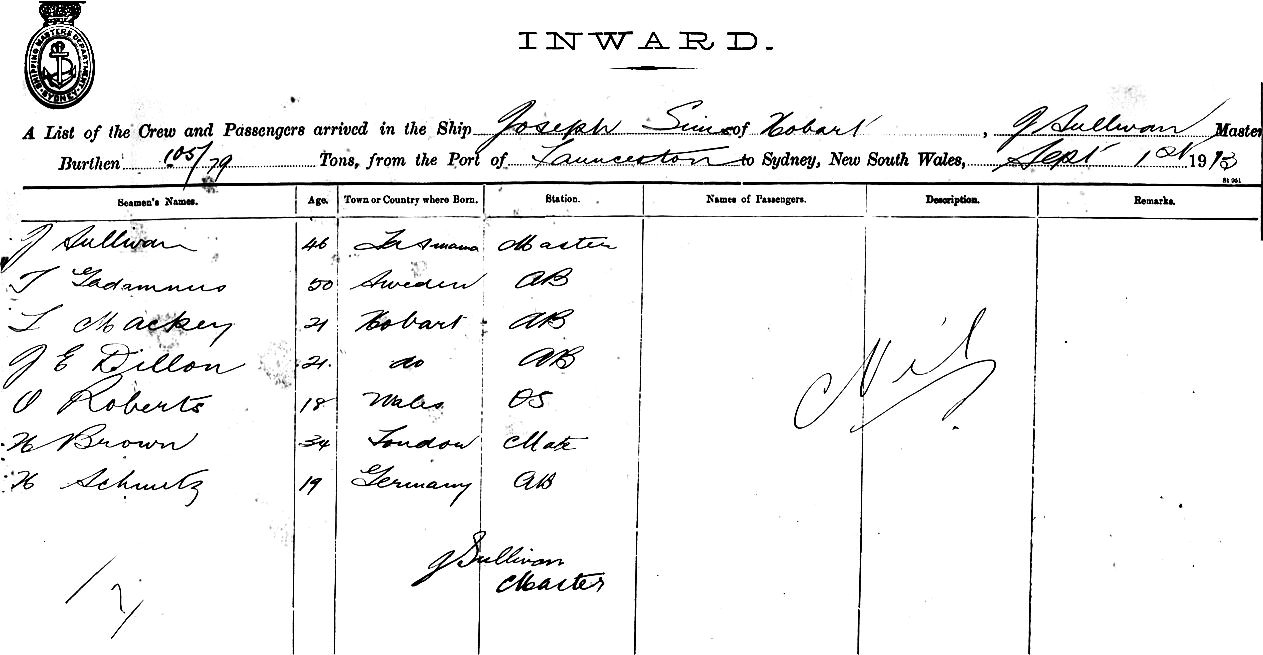 SHIPPING MASTER'S DEPARTMENT SYDNEY
INWARD.
A List of the Crew and Passengers arrived in the Ship Joseph Sims of Hobart, J Sullivan Master
Burthen 105/79 Tons, from the Port of Launceston to Sydney, New South Wales, Sept 1st 1913
St 961
Seamen's Names. Age. Town or Country where Born. Station. Names of Passengers. Description. Remarks.
J Sullivan 46 Tasmania Master
T 50 Sweden AB
L Mackey 21 Hobart AB
J E Dillon 21 do AB
O Roberts 18 Wales OS
H Brown 34 London Mate
H Schmitz 19 Germany AB
Nil
J Sullivan
Master